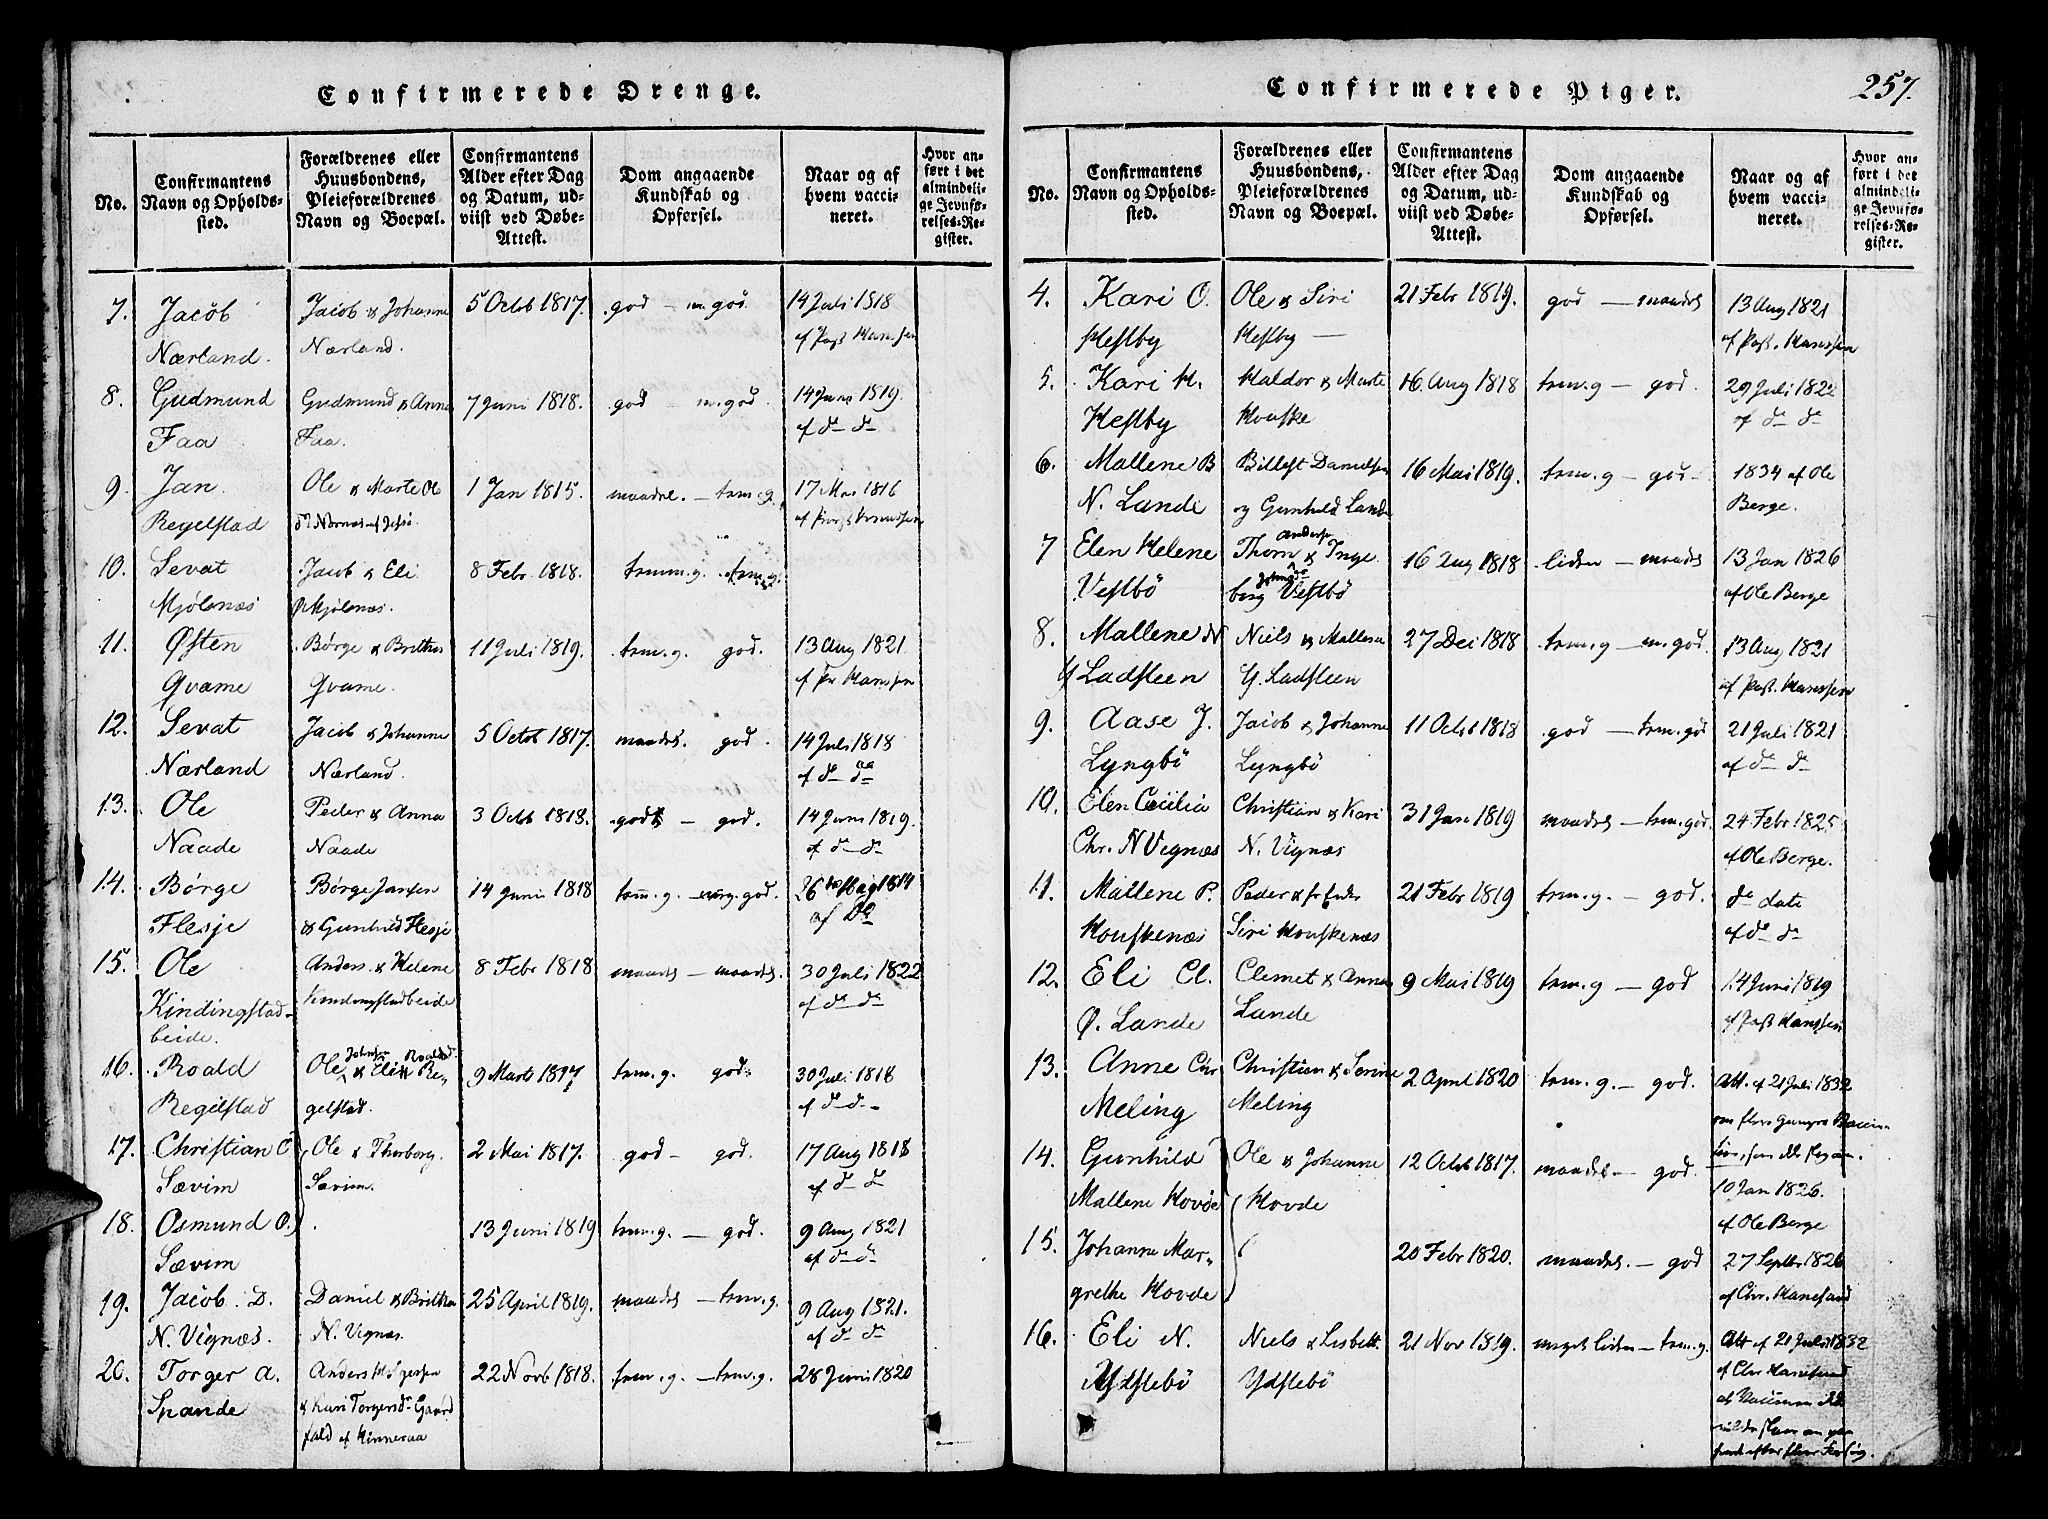 Confirmerede Drenge.
No.
Confirmantens
Navn og Opholds-
sted.
Forældrenes eller
Huusbondens,
Pleieforældrenes
Navn og Boepæl.
Confirmantens
Alder efter Dag
og Datum, ud-
viist ved Døbe-
Attest.
Dom angaaende
Kundskab og
Opførsel.
Naar og af
hvem vacci-
neret.
Hvor an-
ført i det
almindeli-
ge Jevnfø-
relses-Re-
gister.
7. Jacob Jacob & Johanne 5 Octob 1817. god - m. god. 14 Juli 1818
Nærland. Nærland. af Past Hanssen
8. Gudmund Gudmund & Anna 7 Juni 1818. god - m. god. 14 Juni 1819.
Faa Faa. af do do
9. Jan Ole & Marte 1 Jan 1815. maadel. - tem. g. 17 Mai 1816
Regelstad
10. Sevat Jacob & Eli 8 Febr. 1818. temm. g. tem. g.
Mjølsnæs Mjølsnæs.
11. Østen Børge & Brithe 11 Juli 1819. tem. g. god. 13 Aug 1821
Qvame Qvame. af Pr Hanssen
12. Sevat Jacob & Johanne 5 Octob 1817. maadel. god. 14 Juli 1818
Nærland Nærland. af do do
13. Ole Peder & Anna 3 Octb 1818. godt - god. 14 Juni 1819.
Naade Naade af do do
14. Børge Børge Jansen 14 Juni 1818 tem. g. - god. 26
Flesje & Gunhild Flesje af Do
15. Ole Anders & Helene 8 Febr 1818 maadel - maadel. 30 Juli 1822
Kindingstad- Kindingstadbeide af do do
beide.
16. Roald Ole & Re- 9 Marts 1817 tem. g. god. 30 Juli 1818
Regelstad gelstad. af do do
17. Christian O Ole & Thorborg 2 Mai 1817. god - god. 17 Aug 1818
Sævim Sævim. af do do
18. Osmund O. 13 Juni 1819 tem. g. - god. 9 Aug 1821
Sævim af do do
19. Jacob D. Daniel & Britha 25 April 1819. maadel - tem. g. 9 Aug 1821.
N. Vignæs. N. Vignæs. af do do
20. Torger A. Anders 22 Novb 1818. tem. g. - tem. g. 28 Juni 1820
Spande & Kari Torgersdr Gaard
fald af Hinneraa
Confirmerede Piger.
257.
No.
Confirmantens
Navn og Opholds-
sted.
Forældrenes eller
Huusbondens,
Pleieforældrenes
Navn og Boepæl.
Confirmantens
Alder efter Dag
og Datum, ud-
viist ved Døbe-
Attest.
Dom angaaende
Kundskab og
Opførsel.
Naar og af
hvem vacci-
neret.
Hvor an-
ført i det
almindeli-
ge Jevnfø-
relses-Re-
gister.
4. Kari O. Ole & Siri 21 Febr 1819. god - maadel 13 Aug 1821
Hestby Hestby - af Past. Hanssen
5. Kari H. Haldor & Marte 16 Aug 1818 tem. g - god. 29 Juli 1822
Hestby Houske af do do
6. Mallene B Billest Danielsen 16 Mai 1819. tem. g - god - 1834 af Ole
N. Lande og Gunhild Lande Berge.
7 Elen Helene Thom Anders & Inge 16 Aug 1818 liden - maadel 13 Jan 1826
Vestbö borg Vestbö af Ole Berge
8. Mallene N Niels & Mallena 27 Dec 1818 tem. g - m. god. 13 Aug 1821
Y Ladsteen Y. Ladsteen af Past. Hanssen
9. Aase J. Jacob & Johanne 11 Octb 1818 god - tem. god 21 Juli 1821
Lyngbö Lyngbö af do do
10. Elen Cecilia Christian & Kari 31 Jan 1819 maadel - tem. god. 24 Febr 1825
Chr. N Vignæs N. Vignæs af Ole Berge.
11. Mallene P. Peder & 21 Febr 1819 tem. g. - god. do dato
Houskenæs Siri Houskenæs af do do
12. Eli Cl. Clemet & Anna 9 Mai 1819 tem. g - god 14 Juni 1819
Ø. Lande Lande af Past Hanssen
13. Anne Chr Christian & Serine 2 April 1820 tem. g. - god. Att. af 21 Juli 1832
Meling Meling om flere Ganges
14. Gunhild Ole & Johanne 12 Octob 1817. maadel - god. 10 Jan 1826.
Mallene Hovde Hovde af Ole Berge
15. Johanne Mar- 20 Febr 1820. maadel. - god 27 Septbr 1826
grethe Hovde af Chr. Hanesand
16. Eli N. Niels & Lisbett 21 Nov 1819. meget liden - tem. g. Att af 21 Juli 1832
Ydstebö Ydstebö af Chr Hanesand